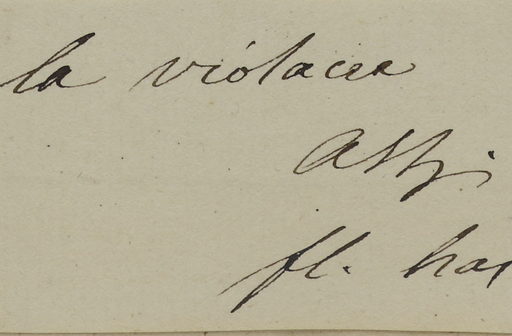 la violacea
fl. har